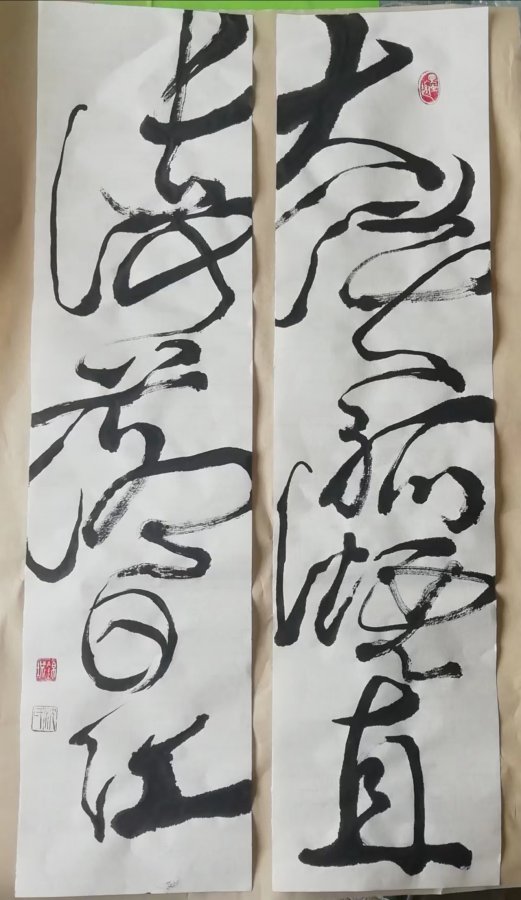 大漠孤煙直
长河落日红